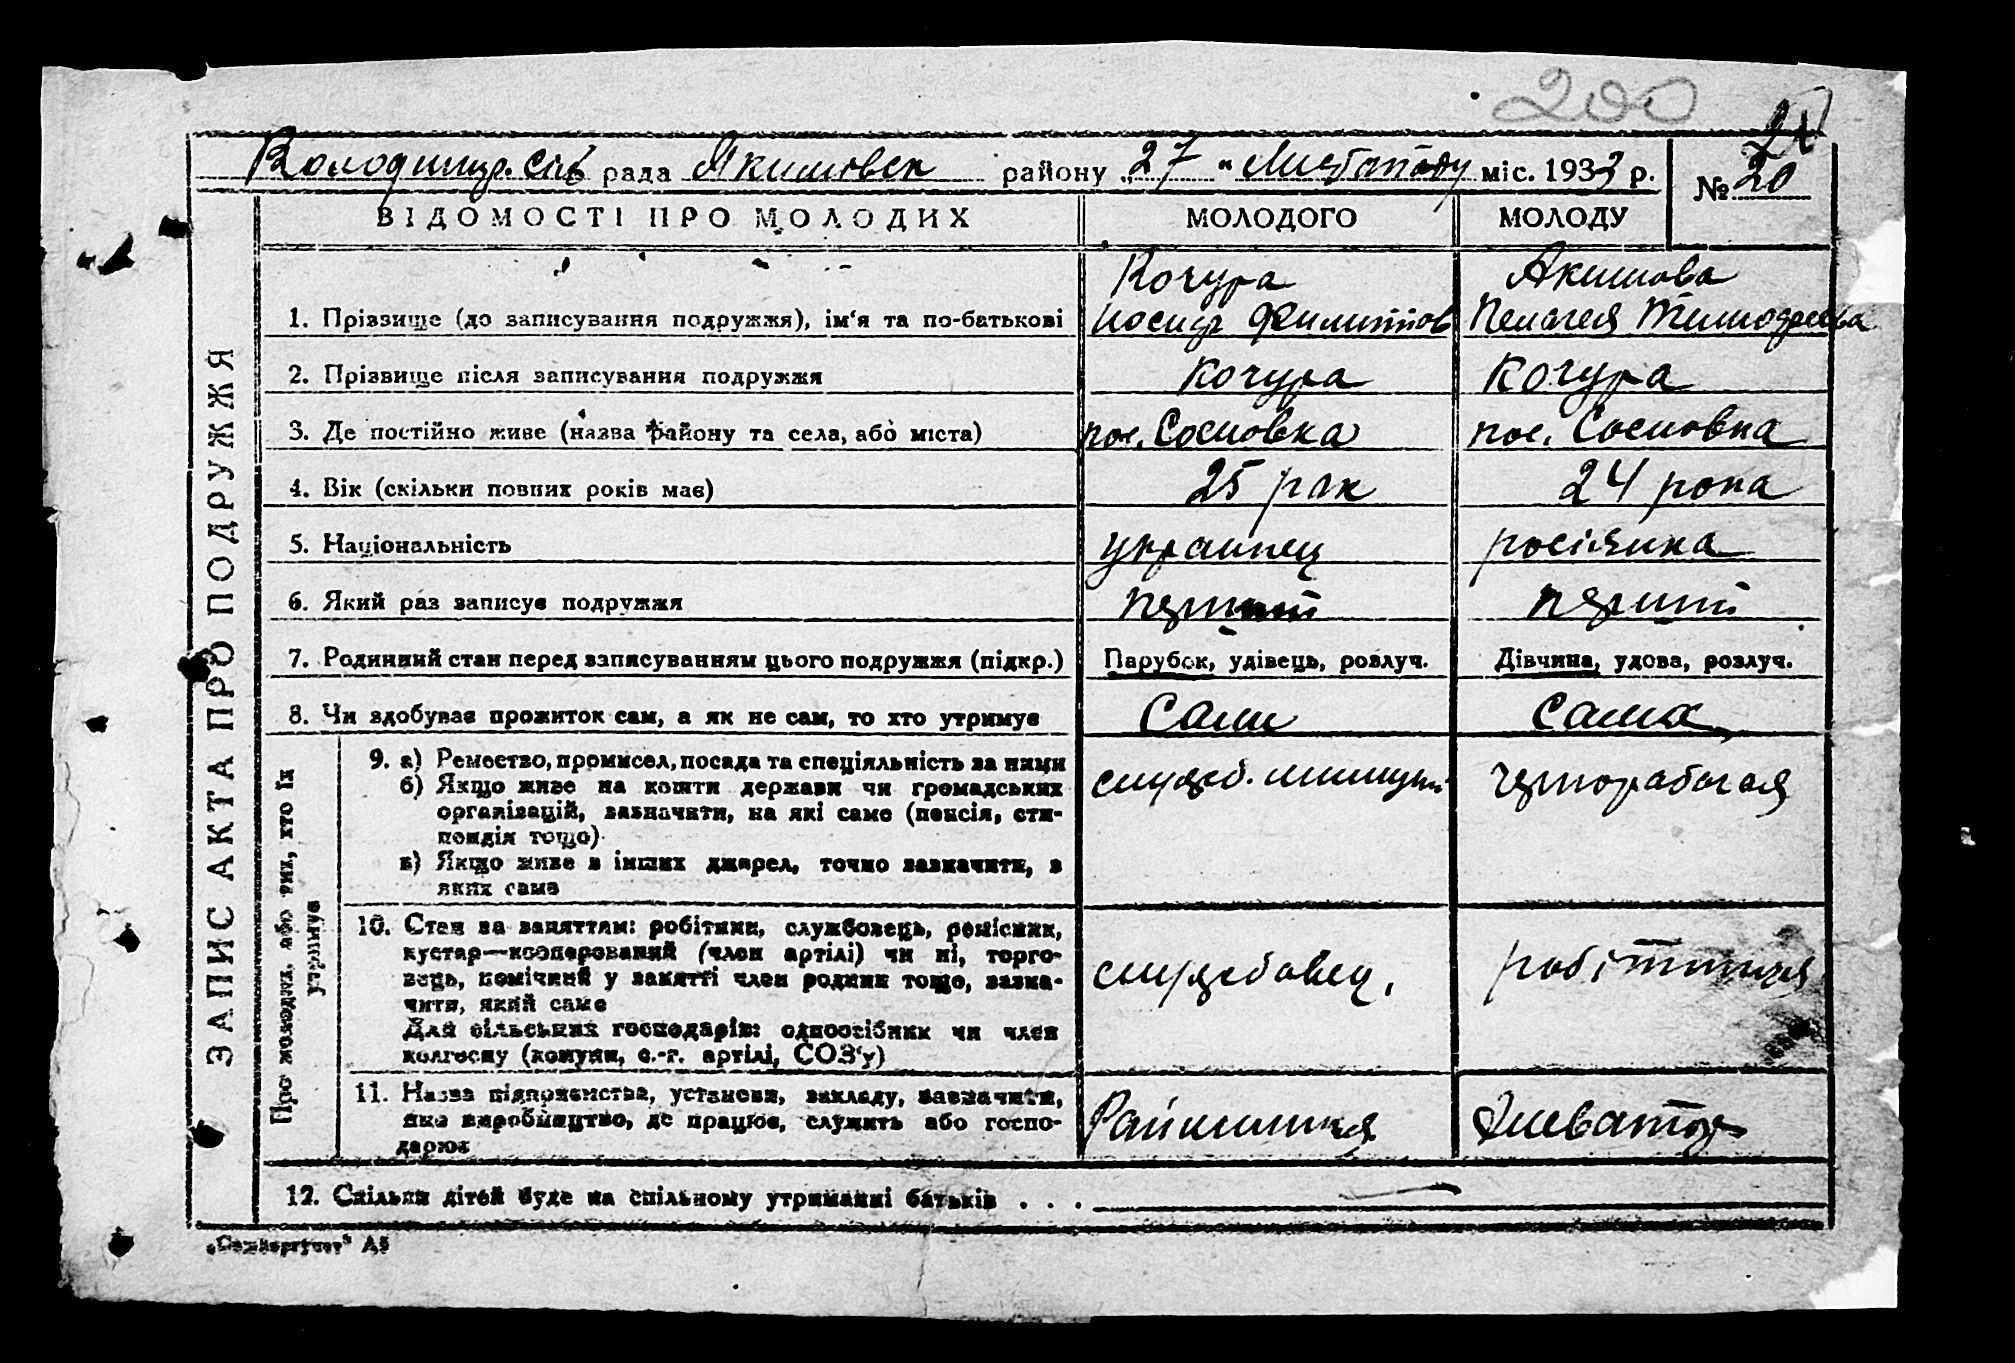 200
Володимир. сіл рада Якимовск району „27“ Листопаду міс. 1933 р.
№ 20
ВІДОМОСТІ ПРО МОЛОДИХ МОЛОДОГО МОЛОДУ
ЗАПИС АКТА ПРО ПОДРУЖЖЯ
Кочура Акимова
1. Прізвище (до записування подружжя), ім‘я та по-батькові Иосиф Филиппов Пелагея Тимофеева
2. Прізвище після записування подружжя Кочура Кочура
3. Де постійно живе (назва району та села, або міста) пос. Сосновка пос. Сосновка
4. Вік (скільки повних років має) 25 рок 24 рока
5. Національність украинец росіянка
6. Який раз записує подружжя перший перший
7. Родинний стан перед записуванням цього подружжя (підкр.) Парубок, удівець, розлуч. Дівчина, удова, розлуч.
8. Чи здобуває прожиток сам, а як не сам, то хто утримує Сам Сама
Про молодих, або тих, хто їх
утримує
9. а) Ремество, промисел, посада та спеціяльність за ними служб. милиции чернорабочая
б) Якщо живе на кошти держави чи громадських
організацій, зазначити, на які саме (пенсія, сти-
пендія тощо)
в) Якщо живе з інших джерел, точно зазначити, з
яких саме
10. Стан за заняттям: робітник, службовець, ремісник,
кустар—кооперований (член артілі) чи ні, торго-
вець, помічний у занятті член родини тощо, зазна- служебовец, робітниця
чити, який саме
Для сільських господарів: одноосібник чи член
колгоспу (комуни, с.-г. артілі, СОЗ‘у)
11. Назва підприємства, установи, закладу, зазначити,
яке виробництво, де працює, служить або госпо- Раймилиция Элеватор
дарює
12. Скільки дітей буде на спільному утриманні батьків . . .